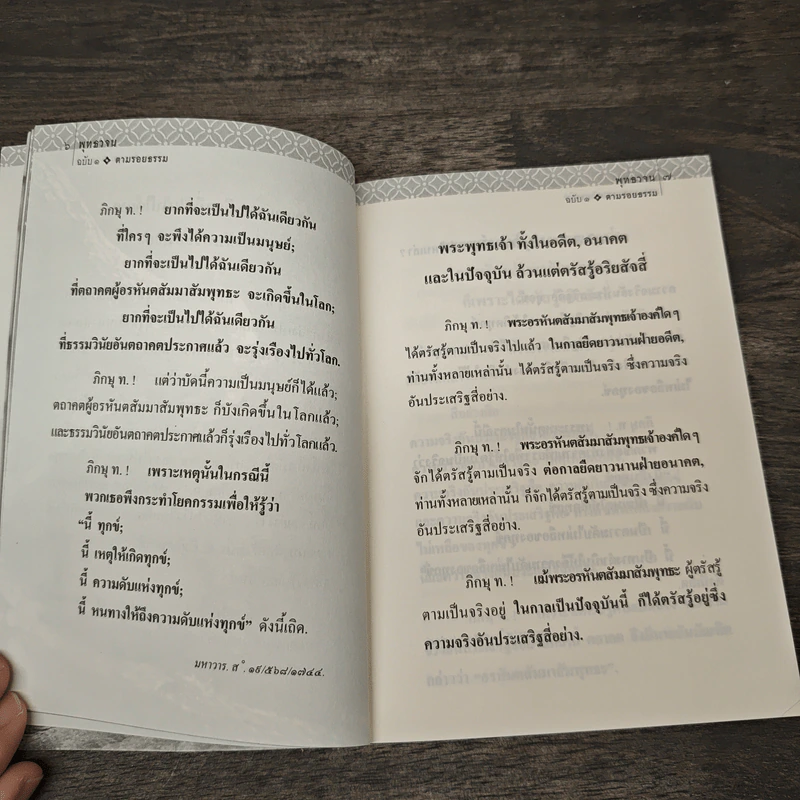 ๖ พุทธวจน
ฉบับ ๑ ❖ ตามรอยธรรม
ภิกษุ ท. ! ยากที่จะเป็นไปได้ฉันเดียวกัน
ที่ใครๆ จะพึงได้ความเป็นมนุษย์;
ยากที่จะเป็นไปได้ฉันเดียวกัน
ที่ตถาคตผู้อรหันตสัมมาสัมพุทธะ จะเกิดขึ้นในโลก;
ยากที่จะเป็นไปได้ฉันเดียวกัน
ที่ธรรมวินัยอันตถาคตประกาศแล้ว จะรุ่งเรืองไปทั่วโลก.
ภิกษุ ท. ! แต่ว่าบัดนี้ความเป็นมนุษย์ก็ได้แล้ว;
ตถาคตผู้อรหันตสัมมาสัมพุทธะ ก็บังเกิดขึ้นในโลกแล้ว;
และธรรมวินัยอันตถาคตประกาศแล้วก็รุ่งเรืองไปทั่วโลกแล้ว.
ภิกษุ ท. ! เพราะเหตุนั้นในกรณีนี้
พวกเธอพึงกระทำโยคกรรมเพื่อให้รู้ว่า
“นี้ ทุกข์;
นี้ เหตุให้เกิดทุกข์;
นี้ ความดับแห่งทุกข์;
นี้ หนทางให้ถึงความดับแห่งทุกข์” ดังนี้เถิด.
มหาวาร. สํ. ๑๙/๕๖๘/๑๗๔๔.
พุทธวจน ๗
ฉบับ ๑ ❖ ตามรอยธรรม
พระพุทธเจ้า ทั้งในอดีต, อนาคต
และในปัจจุบัน ล้วนแต่ตรัสรู้อริยสัจสี่
ภิกษุ ท. ! พระอรหันตสัมมาสัมพุทธเจ้าองค์ใดๆ
ได้ตรัสรู้ตามเป็นจริงไปแล้ว ในกาลยืดยาวนานฝ่ายอดีต,
ท่านทั้งหลายเหล่านั้น ได้ตรัสรู้ตามเป็นจริง ซึ่งความจริง
อันประเสริฐสี่อย่าง.
ภิกษุ ท. ! พระอรหันตสัมมาสัมพุทธเจ้าองค์ใดๆ
จักได้ตรัสรู้ตามเป็นจริง ต่อกาลยืดยาวนานฝ่ายอนาคต,
ท่านทั้งหลายเหล่านั้น ก็จักได้ตรัสรู้ตามเป็นจริง ซึ่งความจริง
อันประเสริฐสี่อย่าง.
ภิกษุ ท. ! แม้พระอรหันตสัมมาสัมพุทธะ ผู้ตรัสรู้
ตามเป็นจริงอยู่ ในกาลเป็นปัจจุบันนี้ ก็ได้ตรัสรู้อยู่ซึ่ง
ความจริงอันประเสริฐสี่อย่าง.